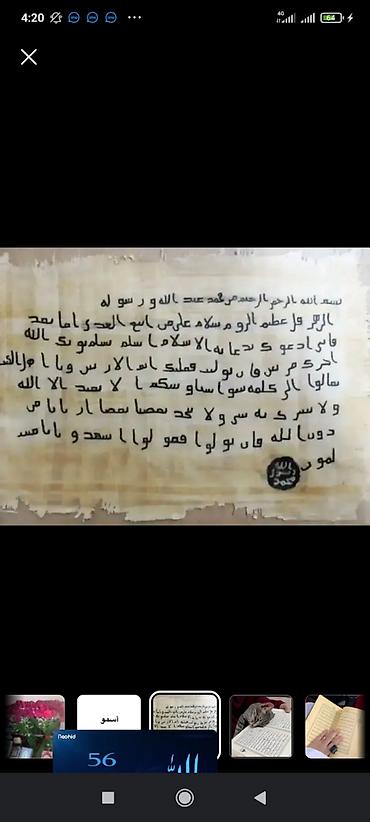 4:20
4G
64
بسم الله الرحمن الرحيم من محمد عبد الله و رسوله
الى هرقل عظيم الروم سلام على من اتبع الهدى اما بعد
فانى ادعوك بدعاية الاسلام اسلم تسلم يوتك الله
اجرك مرتين فان توليت فعليك اثم الاريسين ويا اهل الكتاب
تعالوا الى كلمة سوا بيننا وبينكم الا نعبد الا الله
ولا نشرك به شى ولا يتخذ بعضنا بعضا اربابا من
دون الله فان تولوا فقولوا اشهدوا بانا مسـ
لمون
الله
رسول
محمد
أسمو
56
الله